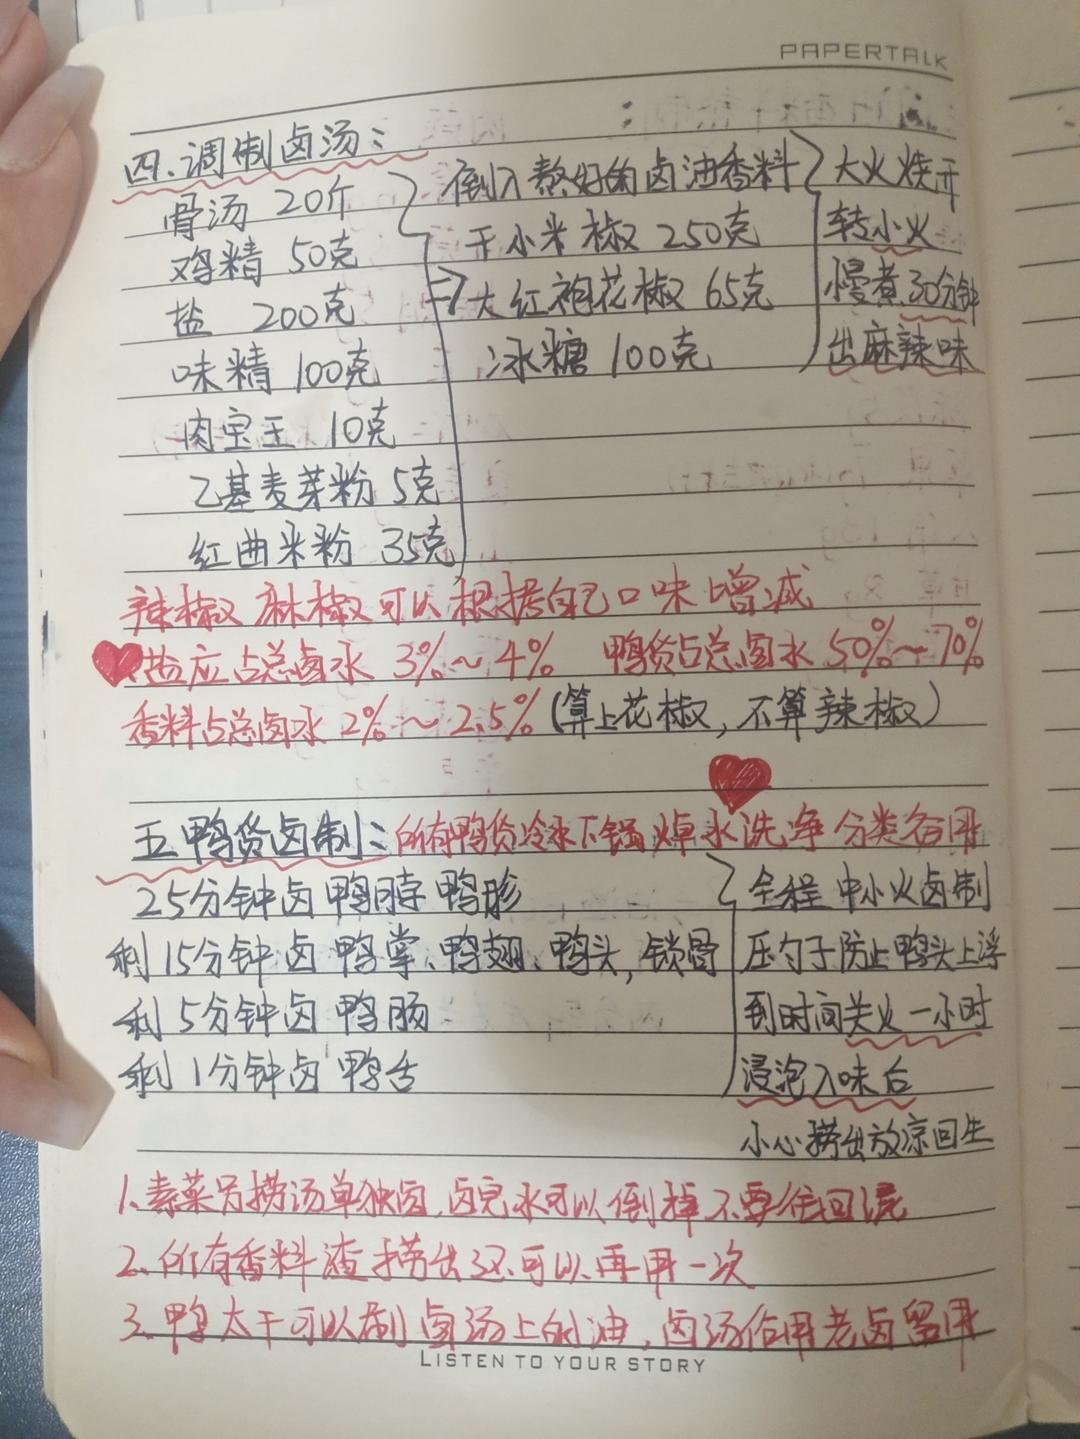 PAPERTALK
四、调制卤汤:
骨汤 20斤
鸡精 50克
盐 200克
味精 100克
肉宝王 10克
乙基麦芽粉 5克
红曲米粉 35克
倒入熬好的卤油香料
干小米椒 250克
大红袍花椒 65克
冰糖 100克
大火烧开
转小火
慢煮30分钟
出麻辣味
辣椒 麻椒可以根据自己口味增减
盐应占总卤水 3%~4% 鸭货占总卤水 50%~70%
香料占总卤水 2%~2.5%(算上花椒,不算辣椒)
五 鸭货卤制: 所有鸭货冷水下锅焯水洗净分类备用
25分钟卤 鸭脖 鸭胗
剩15分钟卤 鸭掌、鸭翅、鸭头,锁骨
剩5分钟卤 鸭肠
剩1分钟卤 鸭舌
全程中小火卤制
压勺子防止鸭头上浮
到时间关火一小时
浸泡入味后
小心捞出放凉回生
1.素菜另捞汤单独卤,卤完水可以倒掉不要往回混
2.所有香料渣捞出还可以再用一次
3.鸭太干可以刷卤汤上的油,卤汤留用老卤留用
LISTEN TO YOUR STORY